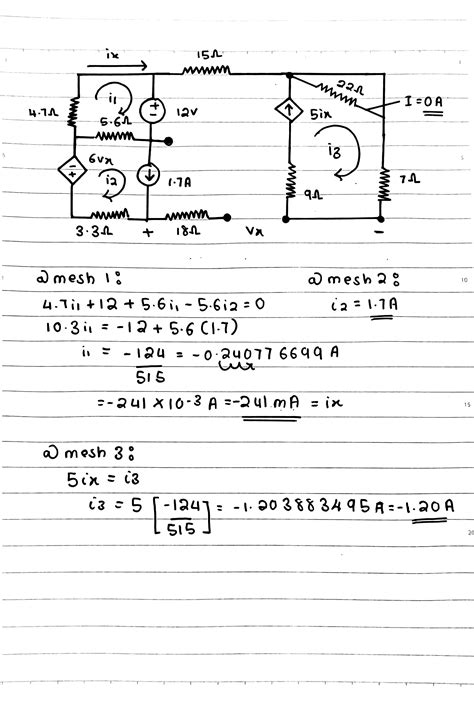 ix
15Ω
i1
4.7Ω
12V
5.6Ω
22Ω
I=0A
5ix
i3
6Vx
i2
1.7A
9Ω
7Ω
3.3Ω
+
18Ω
Vx
-
@ mesh 1:
4.7i1 + 12 + 5.6i1 - 5.6i2 = 0
10.3i1 = -12 + 5.6 (1.7)
i1 = -124/515 = -0.240776699 A
= -241 × 10-3 A = -241 mA = ix
@ mesh 2:
i2 = 1.7A
@ mesh 3:
5ix = i3
i3 = 5 [-124/515] = -1.203883495A = -1.20A